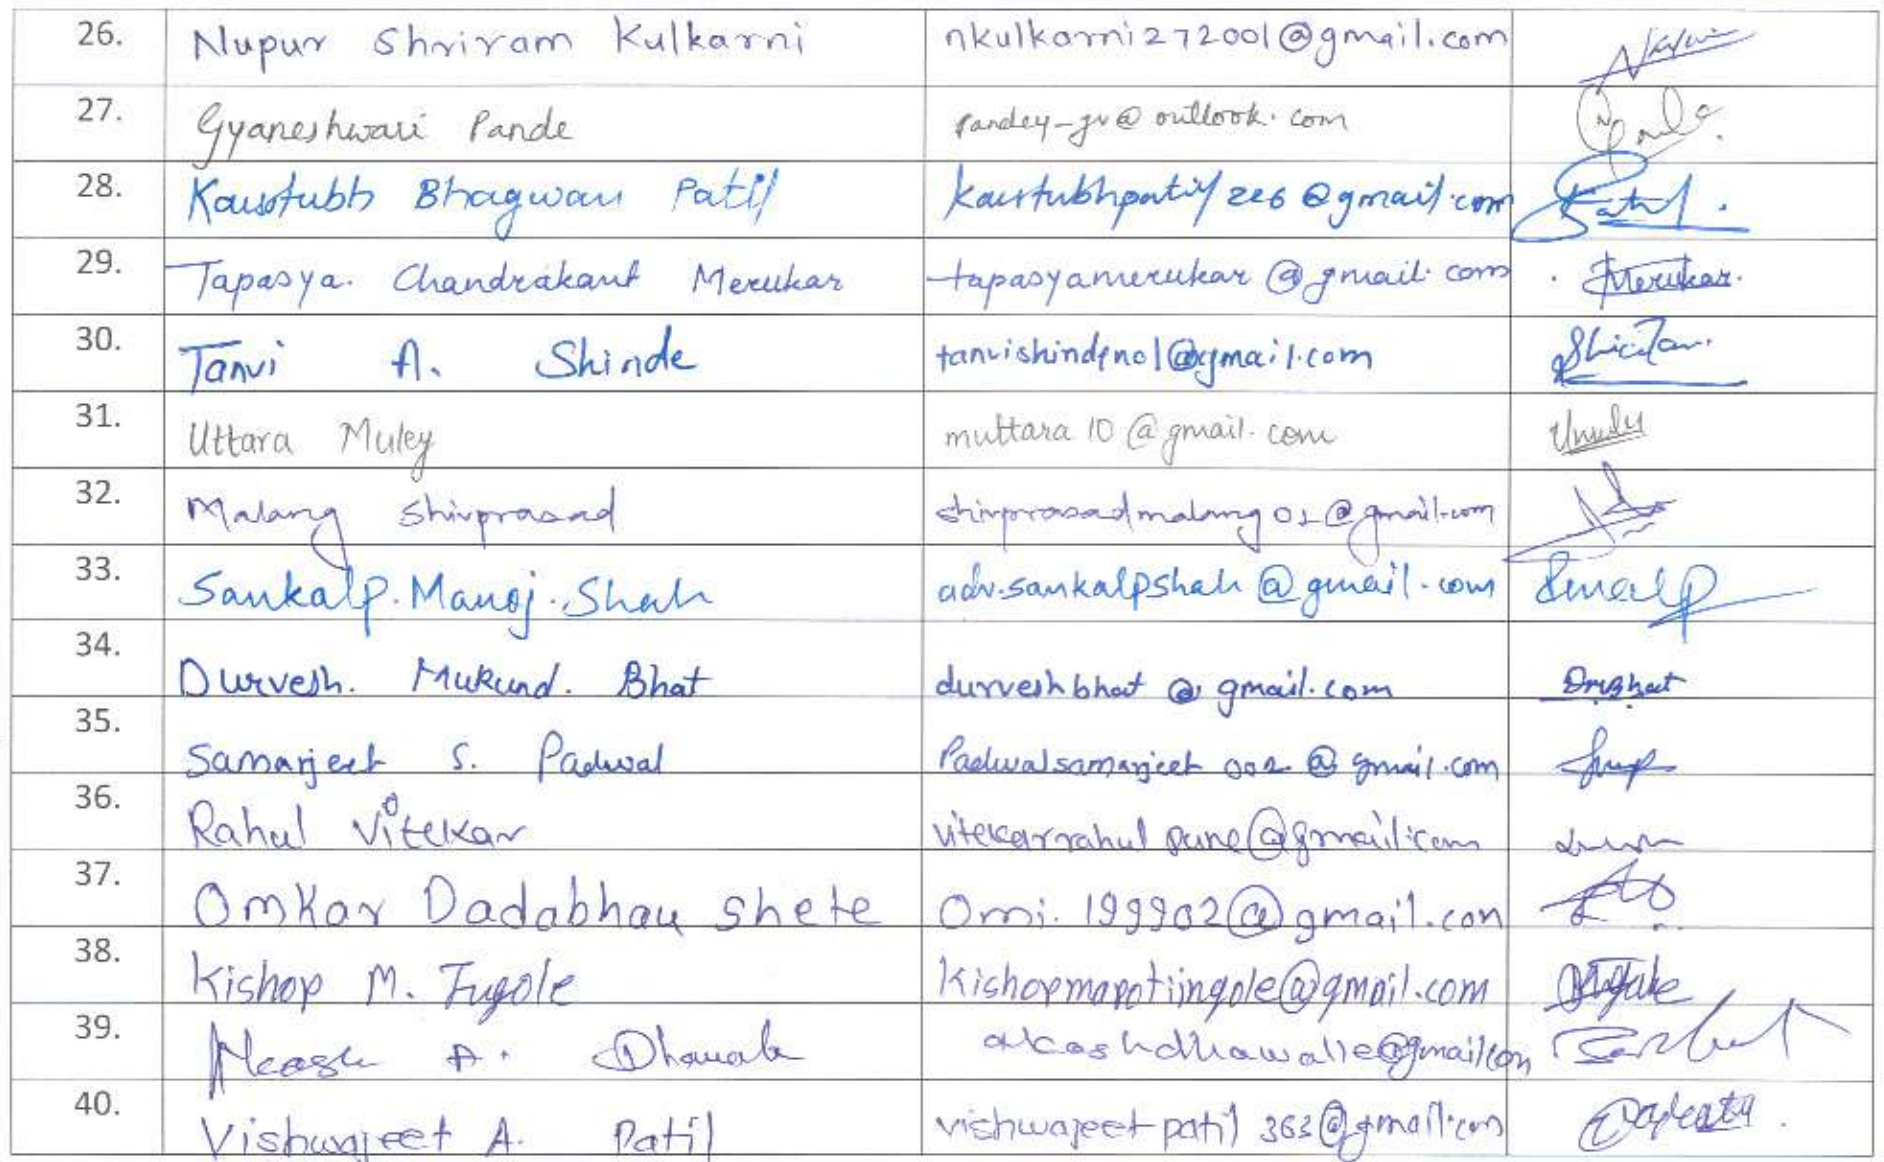 26. Nupur Shriram Kulkarni nkulkarni272001@gmail.com
27. Gyaneshwari Pande pandey-gv@outlook.com
28. Kaustubh Bhagwan Patil kaustubhpatil226@gmail.com Patil.
29. Tapasya. Chandrakant Merukar tapasyamerukar@gmail.com Merukar.
30. Tanvi A. Shinde tanvishindeno1@gmail.com
31. Uttara Muley muttara10@gmail.com
32. Malang Shivprasad shivprasadmalang01@gmail.com
33. Sankalp. Manoj. Shah adv.sankalpshah@gmail.com
34. Durvesh. Mukund. Bhat durveshbhat@gmail.com
35. Samarjeet S. Padwal Padwalsamarjeet002@gmail.com
36. Rahul Vitekar vitekarrahulpune@gmail.com
37. Omkar Dadabhau Shete Omi.199902@gmail.com
38. Kishop M. Ingole kishopmapotiingole@gmail.com
39. Akash A. akashdhawalle@gmail.com
40. Vishwajeet A. Patil vishwajeetpatil363@gmail.com